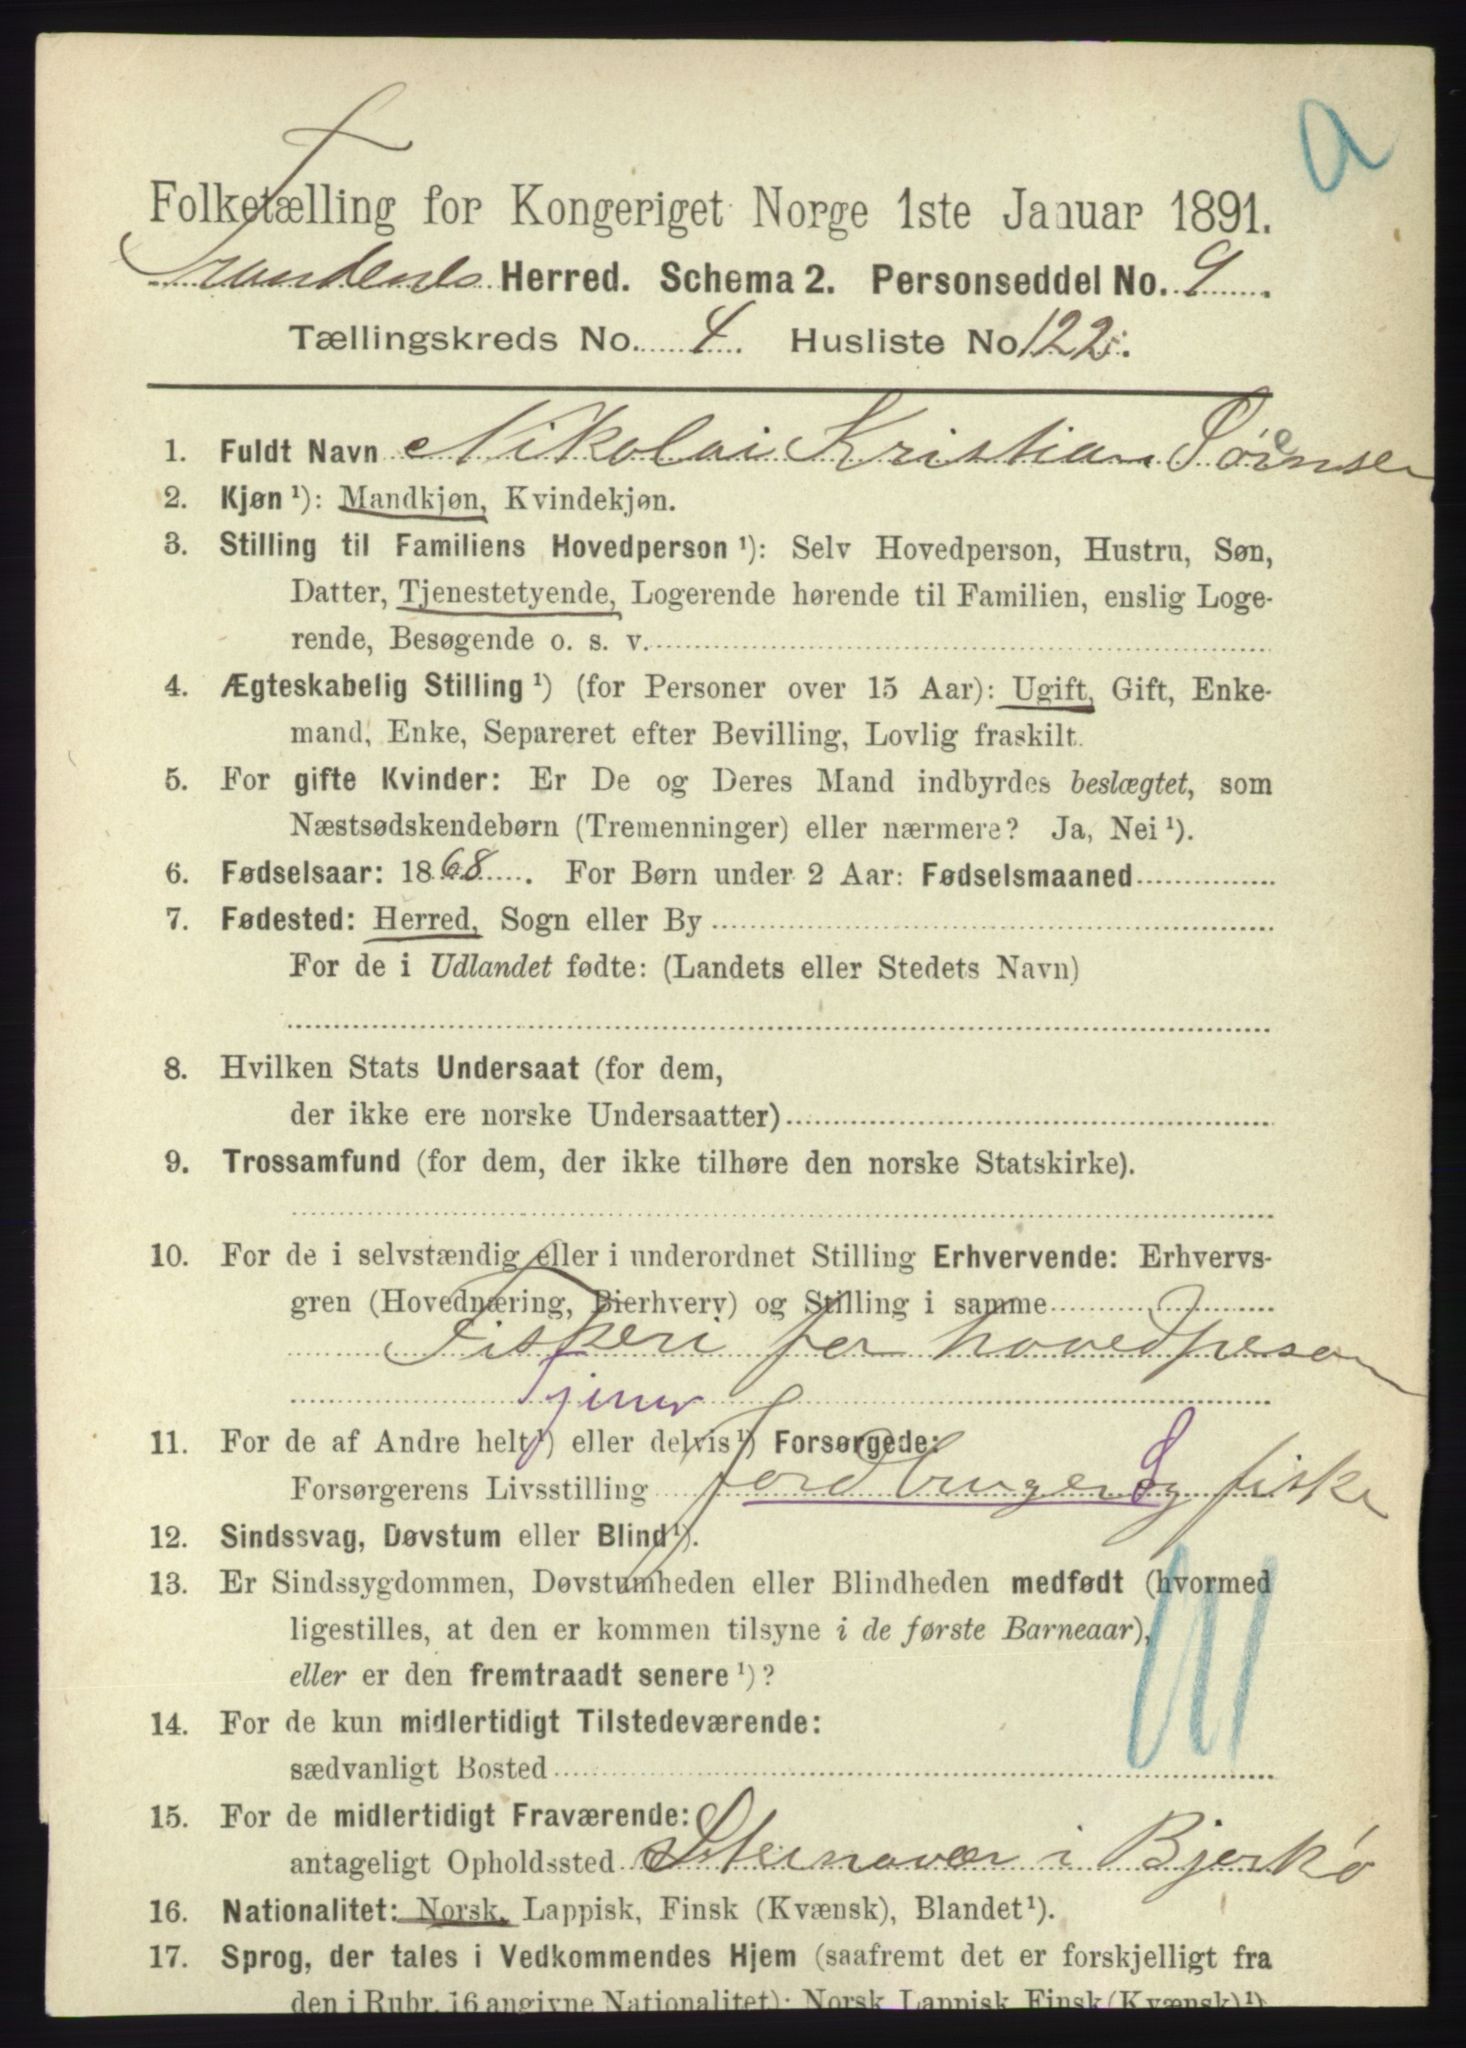 a
F
Folketælling for Kongeriget Norge 1ste Januar 1891.
Trondenes Herred. Schema 2. Personseddel No. 9.
Tællingskreds No. 4. Husliste No 122.
1. Fuldt Navn Nikolai Kristian Sørensen
2. Kjøn ¹): Mandkjøn, Kvindekjøn.
3. Stilling til Familiens Hovedperson ¹): Selv Hovedperson, Hustru, Søn,
Datter, Tjenestetyende, Logerende hørende til Familien, enslig Loge-
rende, Besøgende o. s. v.
4. Ægteskabelig Stilling ¹) (for Personer over 15 Aar): Ugift, Gift, Enke-
mand, Enke, Separeret efter Bevilling, Lovlig fraskilt.
5. For gifte Kvinder: Er De og Deres Mand indbyrdes beslægtet, som
Næstsødskendebørn (Tremenninger) eller nærmere? Ja, Nei ¹).
6. Fødselsaar: 1868. For Børn under 2 Aar: Fødselsmaaned
7. Fødested: Herred, Sogn eller By
For de i Udlandet fødte: (Landets eller Stedets Navn)
8. Hvilken Stats Undersaat (for dem,
der ikke ere norske Undersaatter)
9. Trossamfund (for dem, der ikke tilhøre den norske Statskirke).
10. For de i selvstændig eller i underordnet Stilling Erhvervende: Erhvervs-
gren (Hovednæring, Bierhverv) og Stilling i samme
Fiskeri for hovedpeson
Tjener
11. For de af Andre helt ¹) eller delvis ¹) Forsørgede:
Forsørgerens Livsstilling Jordbruger og fisker
12. Sindssvag, Døvstum eller Blind ¹).
13. Er Sindssygdommen, Døvstumheden eller Blindheden medfødt (hvormed
ligestilles, at den er kommen tilsyne i de første Barneaar),
eller er den fremtraadt senere ¹)?
14. For de kun midlertidigt Tilstedeværende:
sædvanligt Bosted
15. For de midlertidigt Fraværende:
antageligt Opholdssted Steinavær i Bjerkø
16. Nationalitet: Norsk, Lappisk, Finsk (Kvænsk), Blandet ¹).
17. Sprog, der tales i Vedkommendes Hjem (saafremt det er forskjelligt fra
den i Rubr. 16 angivne Nationalitet): Norsk Lappisk Finsk (Kvænsk) ¹)